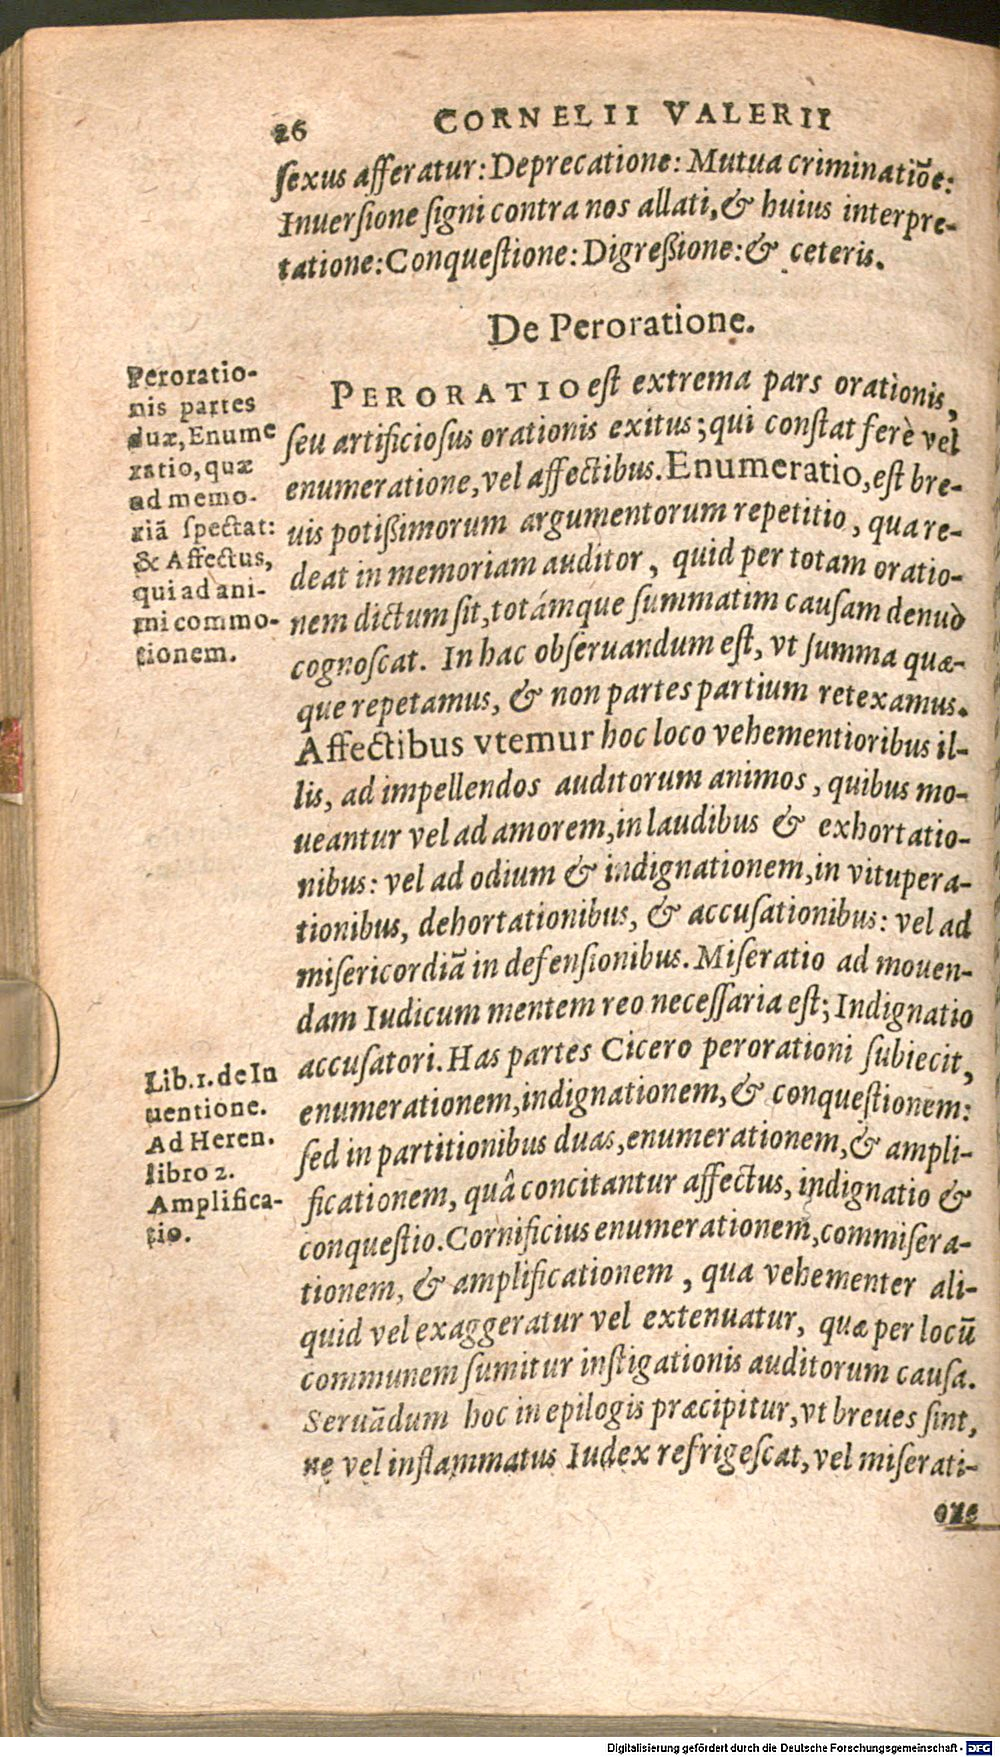 26 CORNELII VALERII
sexus afferatur: Deprecatione: Mutua criminatiōe:
Inuersione signi contra nos allati, & huius interpre-
tatione: Conquestione: Digreßione: & ceteris.
De Peroratione.
Peroratio-
nis partes
duæ, Enume
ratio, quæ
ad memo-
riā spectat:
& Affectus,
qui ad ani-
mi commo-
tionem.
PERORATIO est extrema pars orationis,
seu artificiosus orationis exitus; qui constat ferè vel
enumeratione, vel affectibus. Enumeratio, est bre-
uis potißimorum argumentorum repetitio, qua re-
deat in memoriam auditor, quid per totam oratio-
nem dictum sit, totámque summatim causam denuò
cognoscat. In hac obseruandum est, vt summa quæ-
que repetamus, & non partes partium retexamus.
Affectibus vtemur hoc loco vehementioribus il-
lis, ad impellendos auditorum animos, quibus mo-
ueantur vel ad amorem, in laudibus & exhortatio-
nibus: vel ad odium & indignationem, in vitupera-
tionibus, dehortationibus, & accusationibus: vel ad
misericordiā in defensionibus. Miseratio ad mouen-
dam Iudicum mentem reo necessaria est; Indignatio
accusatori. Has partes Cicero perorationi subiecit,
enumerationem, indignationem, & conquestionem:
sed in partitionibus duas, enumerationem, & ampli-
ficationem, quâ concitantur affectus, indignatio &
conquestio. Cornificius enumerationem, commisera-
tionem, & amplificationem, qua vehementer ali-
quid vel exaggeratur vel extenuatur, quæ per locū
communem sumitur instigationis auditorum causa.
Seruādum hoc in epilogis præcipitur, vt breues sint,
ne vel inflammatus Iudex refrigescat, vel miserati-
one
Lib. 1. de In
uentione.
Ad Heren.
libro 2.
Amplifica-
tio.
Digitalisierung gefördert durch die Deutsche Forschungsgemeinschaft - DFG